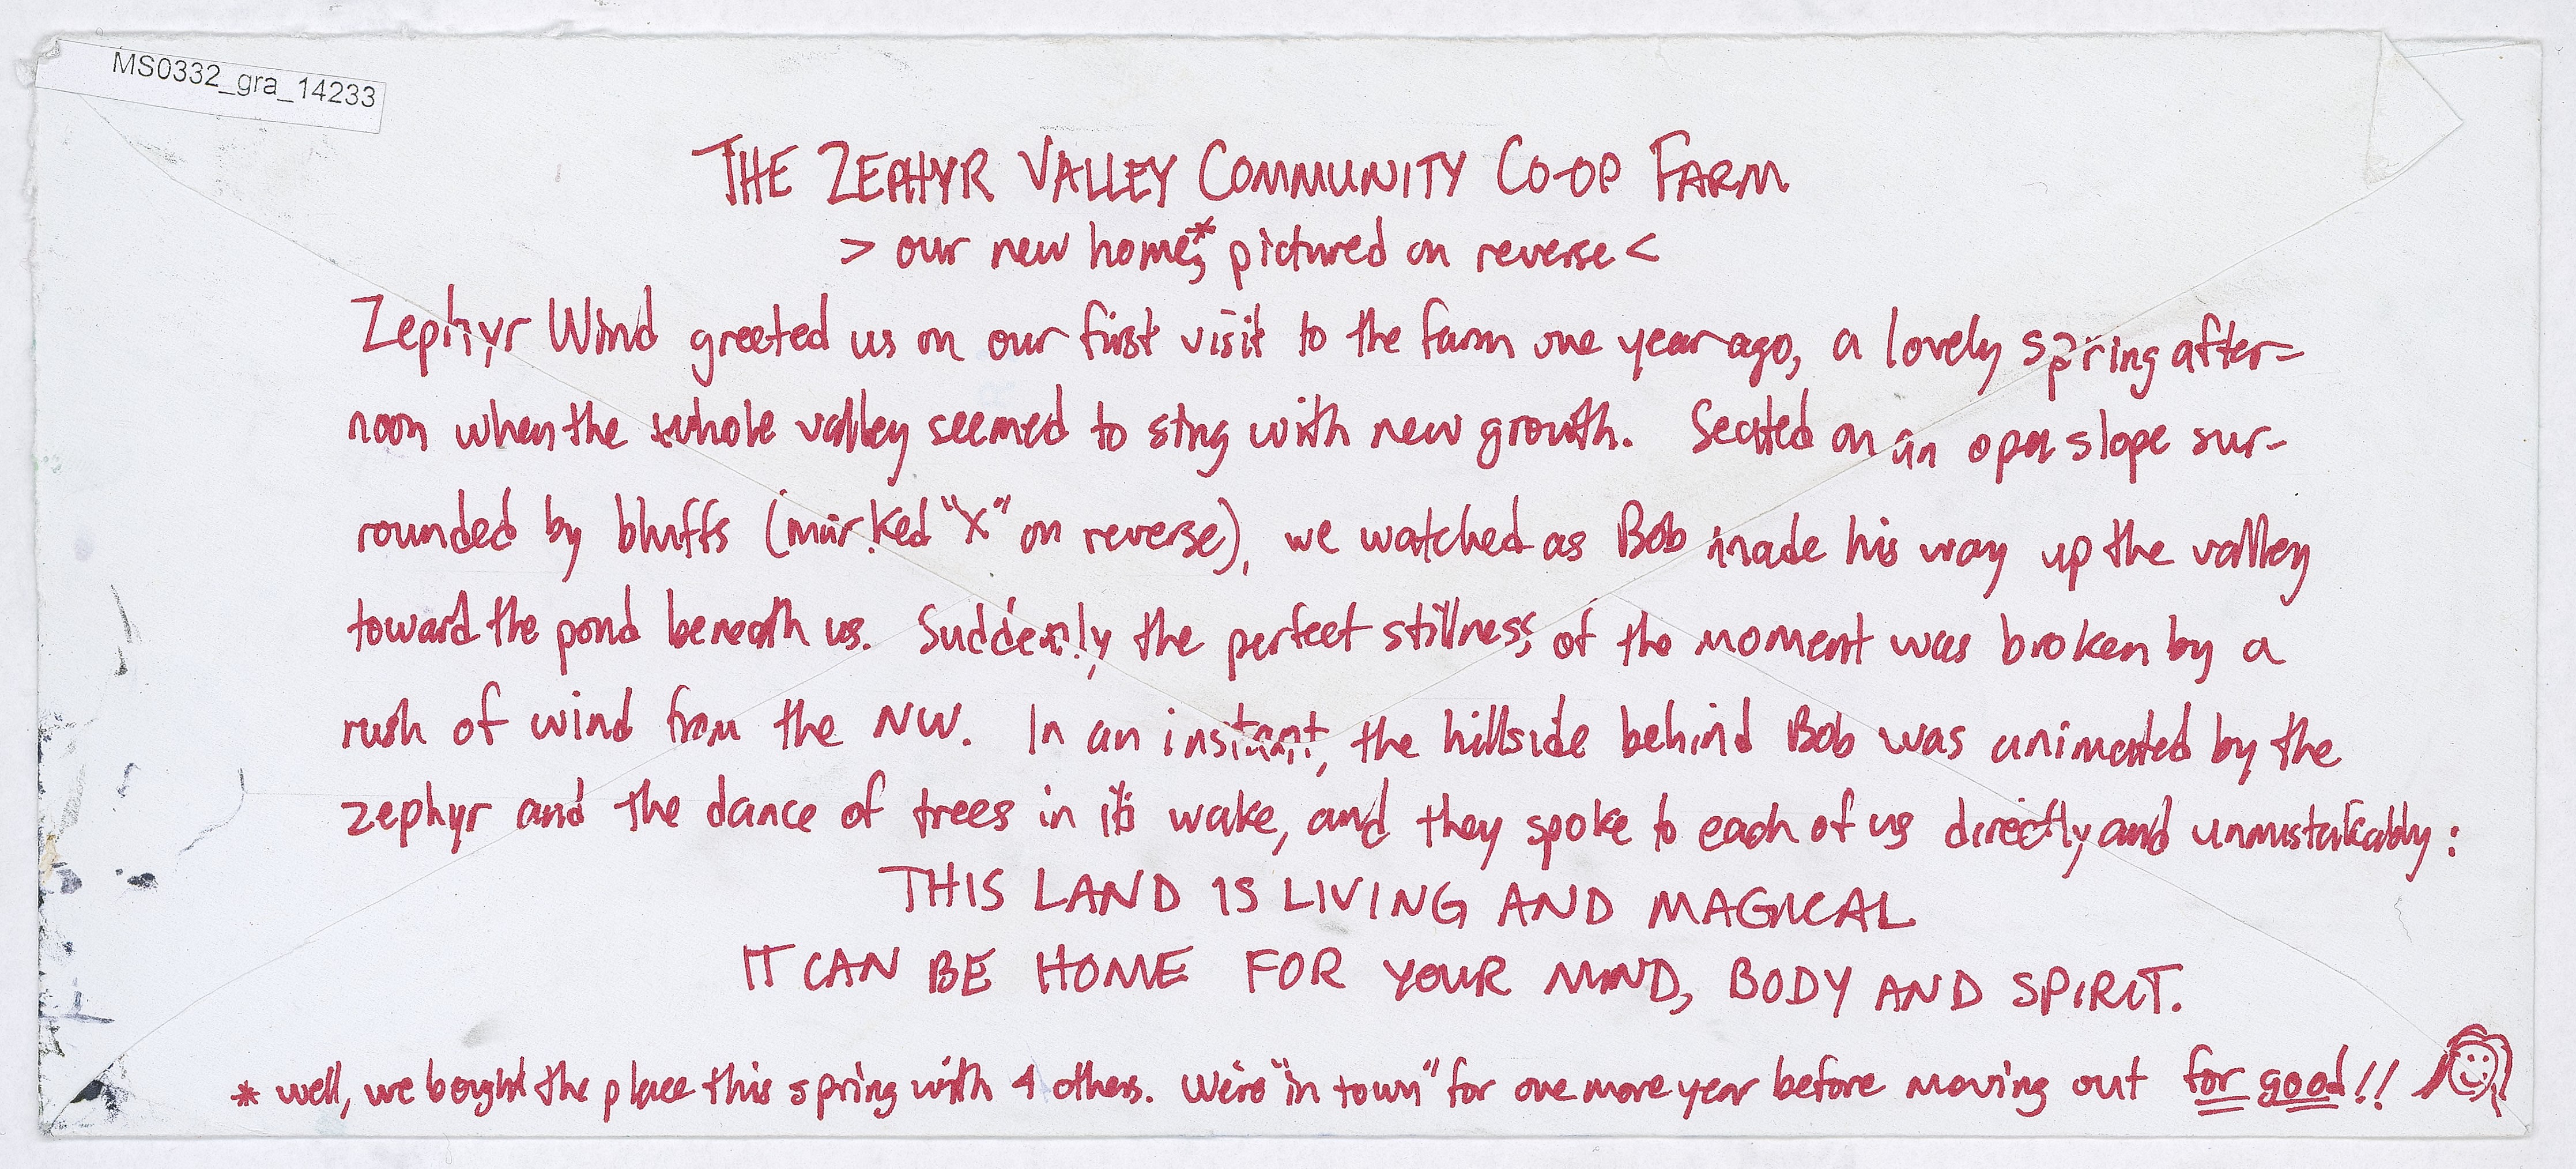 MS0332_gra_14233
THE ZEPHYR VALLEY COMMUNITY CO-OP FARM
> our new home*, pictured on reverse <
Zephyr Wind greeted us on our first visit to the farm one year ago, a lovely spring after=
noon when the whole valley seemed to sing with new growth. Seated on an open slope sur-
rounded by bluffs (marked "X" on reverse), we watched as Bob made his way up the valley
toward the pond beneath us. Suddenly the perfect stillness of the moment was broken by a
rush of wind from the NW. In an instant, the hillside behind Bob was animated by the
zephyr and the dance of trees in its wake, and they spoke to each of us directly and unmistakably:
THIS LAND IS LIVING AND MAGICAL
IT CAN BE HOME FOR YOUR MIND, BODY AND SPIRIT.
* well, we bought the place this spring with 4 others. We're "in town" for one more year before moving out for good!!